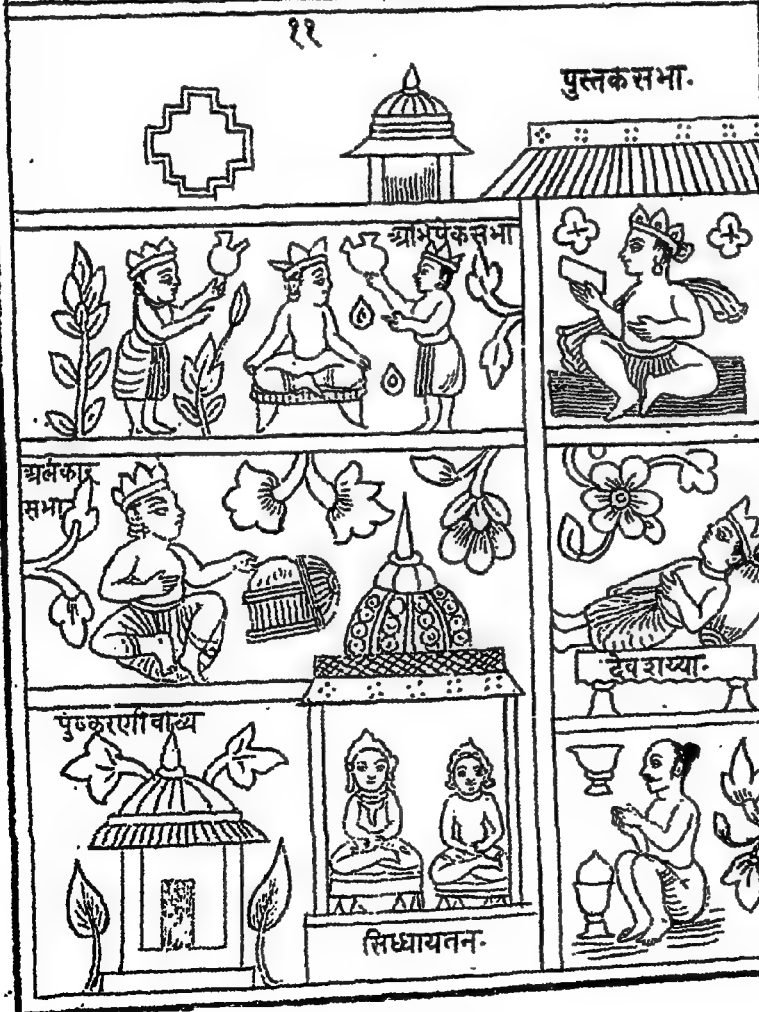 ११
पुस्तकसभा.
अभिषेकसभा
अलंकार
सभा
देवशय्या.
पुष्करणीवाव्य
सिध्धायतन.